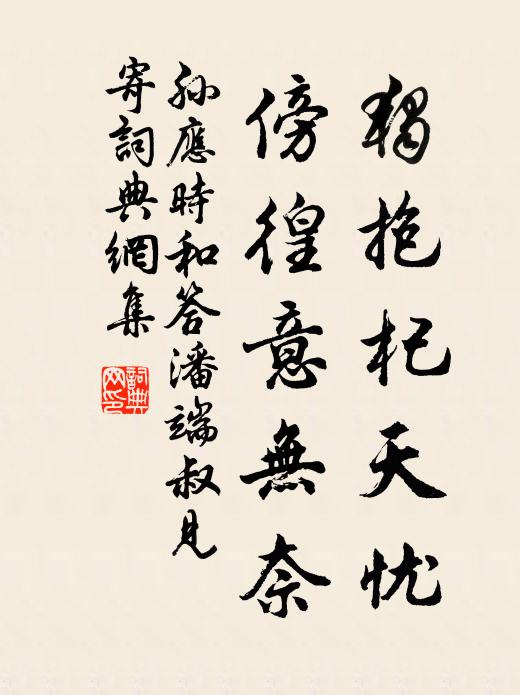 獨抱杞天忧
傍徨意無奈
孙應時和答潘端叔見
寄詞典網集
詞典網印